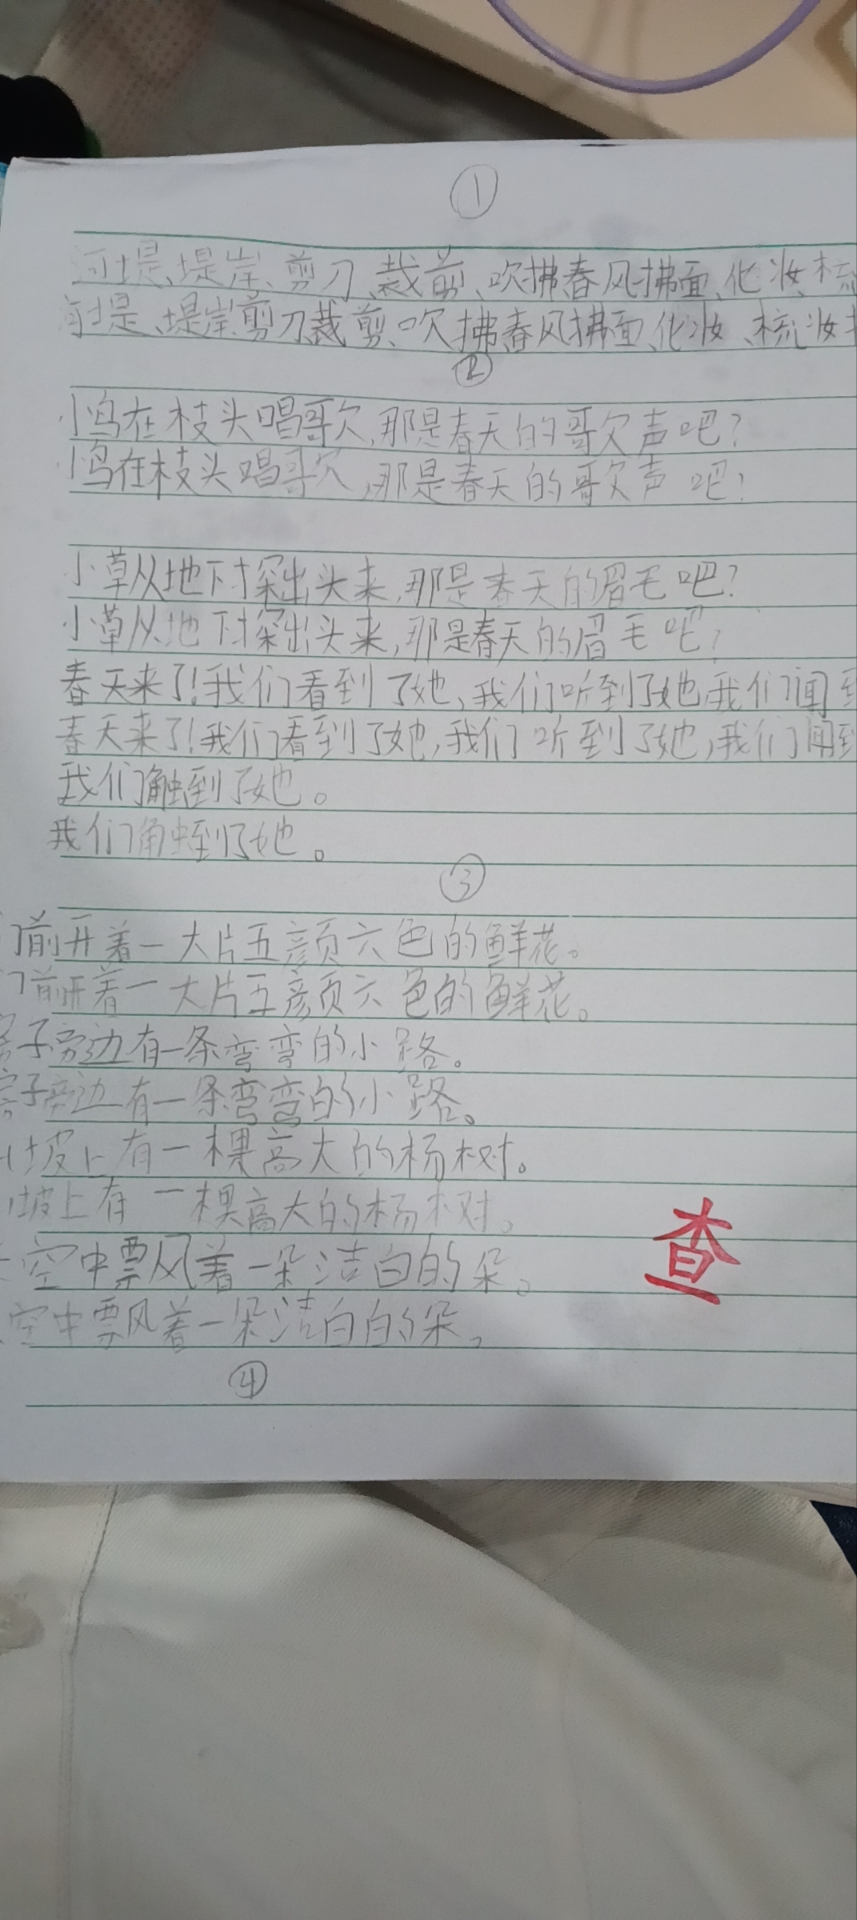 ①
河堤、堤岸、剪刀、裁剪、吹拂春风拂面、化妆、梳
河堤、堤岸、剪刀裁剪、吹拂春风拂面、化妆、梳妆
②
小鸟在枝头唱歌,那是春天的歌声吧?
小鸟在枝头唱歌,那是春天的歌声吧?
小草从地下探出头来,那是春天的眉毛吧?
小草从地下探出头来,那是春天的眉毛吧?
春天来了!我们看到了她,我们听到了她,我们闻到
春天来了!我们看到了她,我们听到了她,我们闻到
我们触到了她。
我们触到了她。
③
门前开着一大片五颜六色的鲜花。
门前开着一大片五颜六色的鲜花。
房子旁边有一条弯弯的小路。
房子旁边有一条弯弯的小路。
山坡上有一棵高大的杨树。
山坡上有一棵高大的杨树。
空中飘着一朵洁白的朵。
空中飘着一朵洁白的朵。
查
④